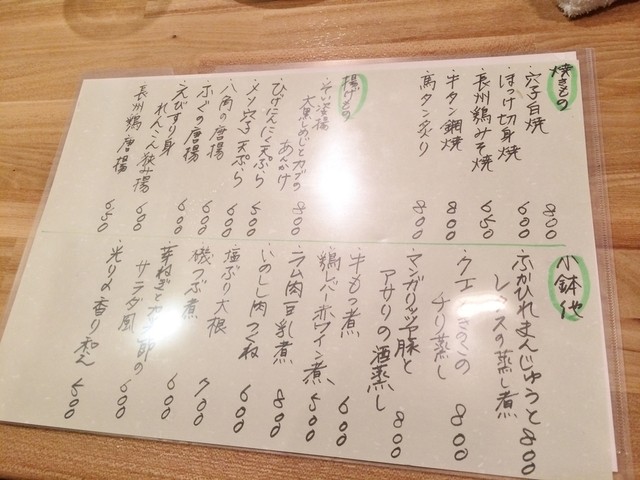 焼きもの
・穴子白焼 800
・ほっけ切身焼 600
・長州鶏みそ焼 650
・牛タン網焼 800
・馬タン炙り 800
揚げもの
大黒しめじとカブの
あんかけ 800
・ひげにんにく天ぷら 500
・メソ穴子天ぷら 600
・八角の唐揚 600
・ふぐの唐揚 600
・えびすり身
れんこん挟み揚 600
・長州鶏唐揚 650
小鉢他
・ふかひれまんじゅうと
レタスの蒸し煮 800
・クエときのこの
チリ蒸し 800
・マンガリッツァ豚と
アサリの酒蒸し 800
・牛もつ煮 600
・鶏レバー赤ワイン煮 500
・ラム肉豆乳煮 800
・いのしし肉つくね 600
・塩ぶり大根 700
・磯つぶ煮 600
・芽ねぎと
サラダ風 600
香り和え 500